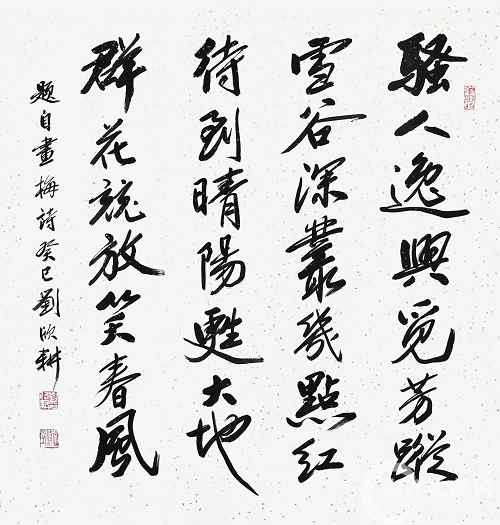 騷人逸興覓芳蹤
雪谷深叢幾點紅
待到晴陽甦大地
群花競放笑春風
題自畫梅詩癸巳劉欣耕